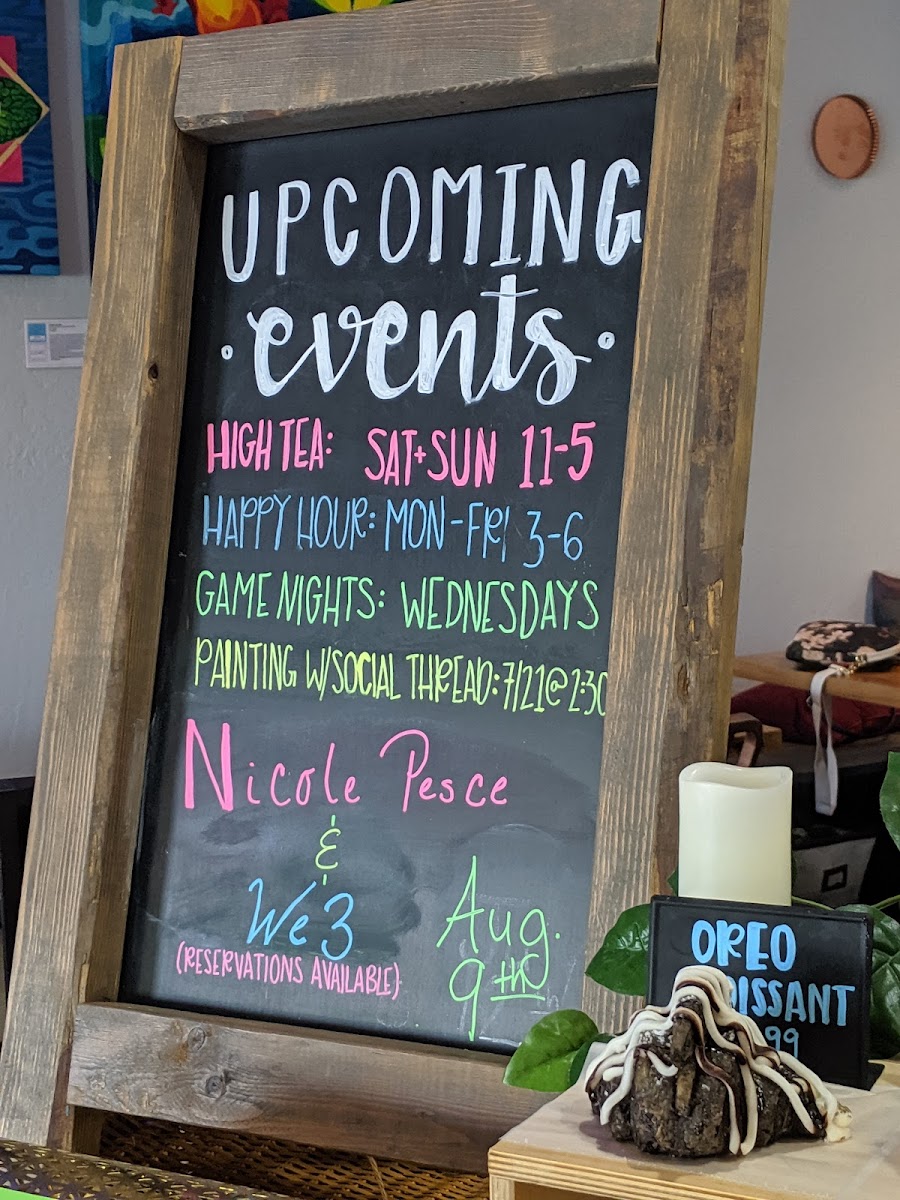 UPCOMING
events
HIGH TEA: SAT+SUN 11-5
HAPPY HOUR: MON-FRI 3-6
GAME NIGHTS: WEDNESDAYS
PAINTING W/SOCIAL THREAD: 7/21@2:30
Nicole Pesce
&
We 3
(RESERVATIONS AVAILABLE)
Aug.
9th
OREO
OISSANT
99